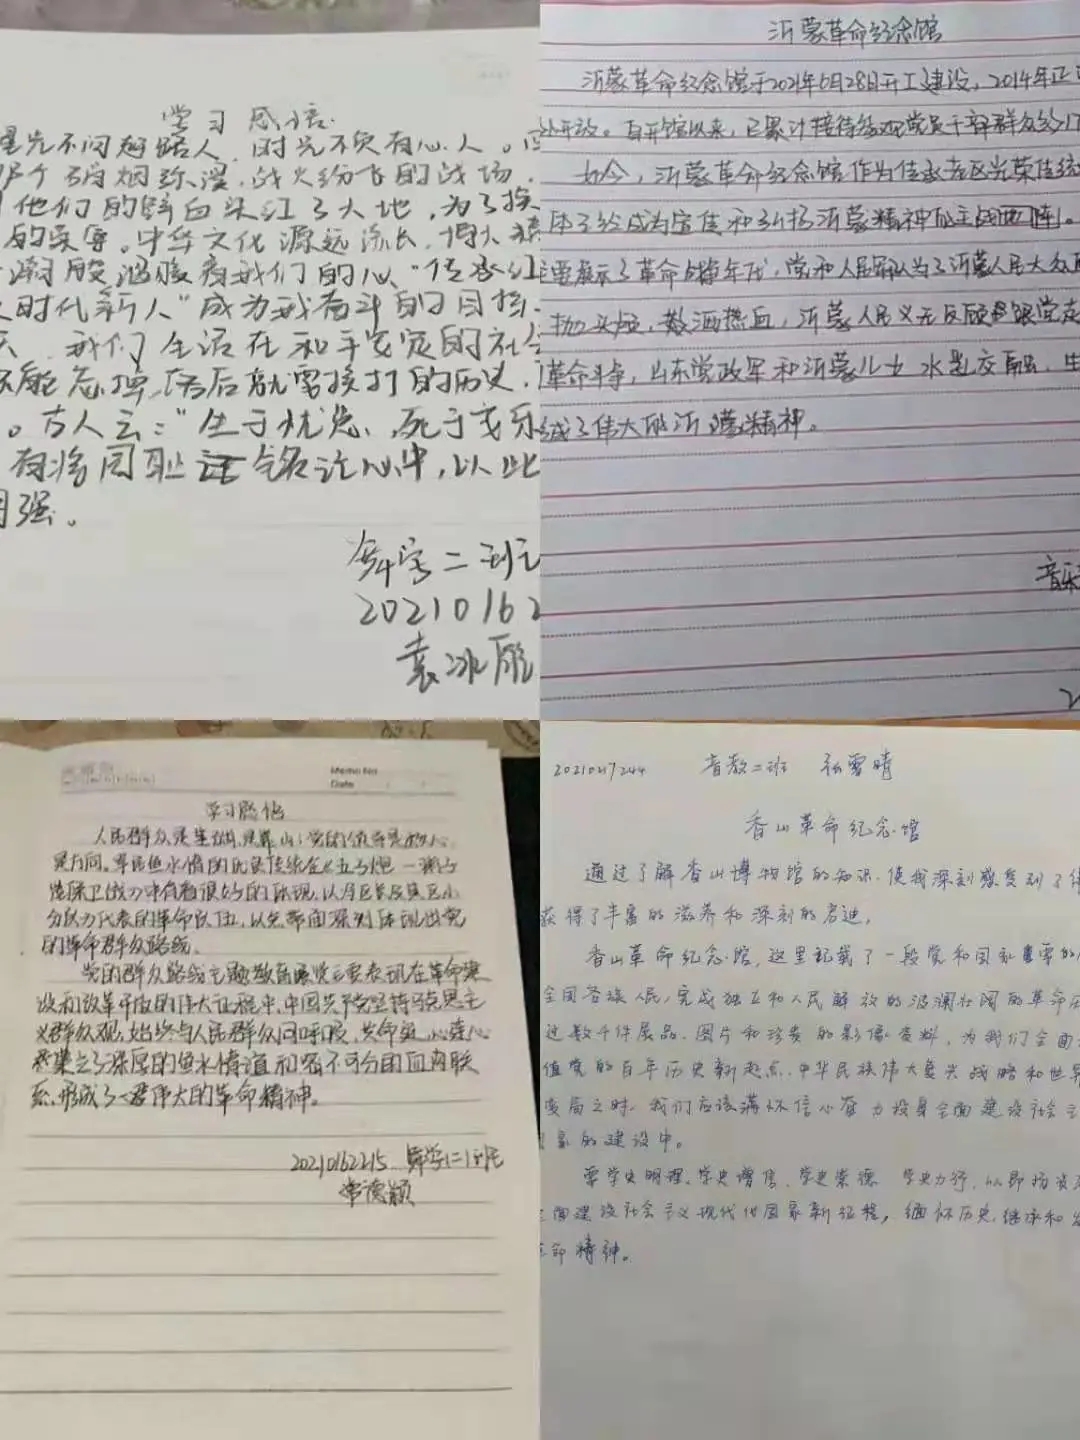 学习感悟
星光不问赶路人,时光不负有心人。
硝烟弥漫,战火纷飞的战场,
他们的鲜血染红了大地,为了换
的荣辱。中华文化源远流长,博大精
我们的心"传承红
时代新人"成为我奋斗的目标、
我们生活在和平安定的社会
能忘掉落后就要挨打的历史,
。古人云:"生于忧患,死于安乐
有将国耻铭记心中,以此
国强。
舞学二班
20210162
袁冰雁
沂蒙革命纪念馆
沂蒙革命纪念馆于2021年6月28日开工建设,2014年正
外开放。自开馆以来,已累计接待参观党员干部群众约17
如今,沂蒙革命纪念馆作为传承老区光荣传统
已经成为宣传和弘扬沂蒙精神的主战西阵。
主要展示了革命战争年代,党和人民军队为了沂蒙人民大众
抛头颅,数洒热血,沂蒙人民义无反顾跟党走
革命斗争,山东党政军和沂蒙儿女水乳交融,生
成了伟大的沂蒙精神。
音乐
Memo No.
Date
学习感悟
人民群众是生命,是靠山;党的领导是核心,
是方向。军民鱼水情的优良传统在《五号炮
中有着很好的体现,以
分队为代表的革命队伍,以
的革命群众路线。
党的群众路线主题教育展览主要表现在革命建
设和改革开放的伟大征程中,中国共产党坚持马克思主
义群众观,始终与人民群众同呼吸,共命运,心连心
凝集之了深厚的鱼水情谊和密不可分的血肉联
系,形成了伟大的革命精神。
20210162215 舞学二班
常德颖
20210217244 音教二班 张雪晴
香山革命纪念馆
通过了解香山博物馆的知识,使我深刻感受到了
获得了丰富的滋养和深刻的启迪。
香山革命纪念馆,这里记载了一段党和国家重要的
全国各族人民,完成独立和人民解放的波澜壮阔的革命历
过数千件展品、图片和珍贵的影像资料,为我们全面
值党的百年历史新起点、中华民族伟大复兴战略和世界
变局之时,我们应该满怀信心奋力投身全面建设社会主
国家的建设中。
要学史明理、学史增信、学史崇德、学史力行,以昂扬姿
全面建设社会主义现代化国家新征程,缅怀历史,继承和发
革命精神。